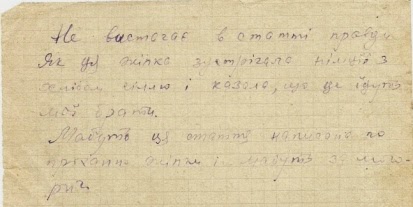 Не вистачає в статті правди
Як ця жінка зустрічала німців з
хлібом сіллю і казала, що це ідуть
мої брати.
Мабуть ця стаття написана по
проханню жінки і мабуть за мого-
рич